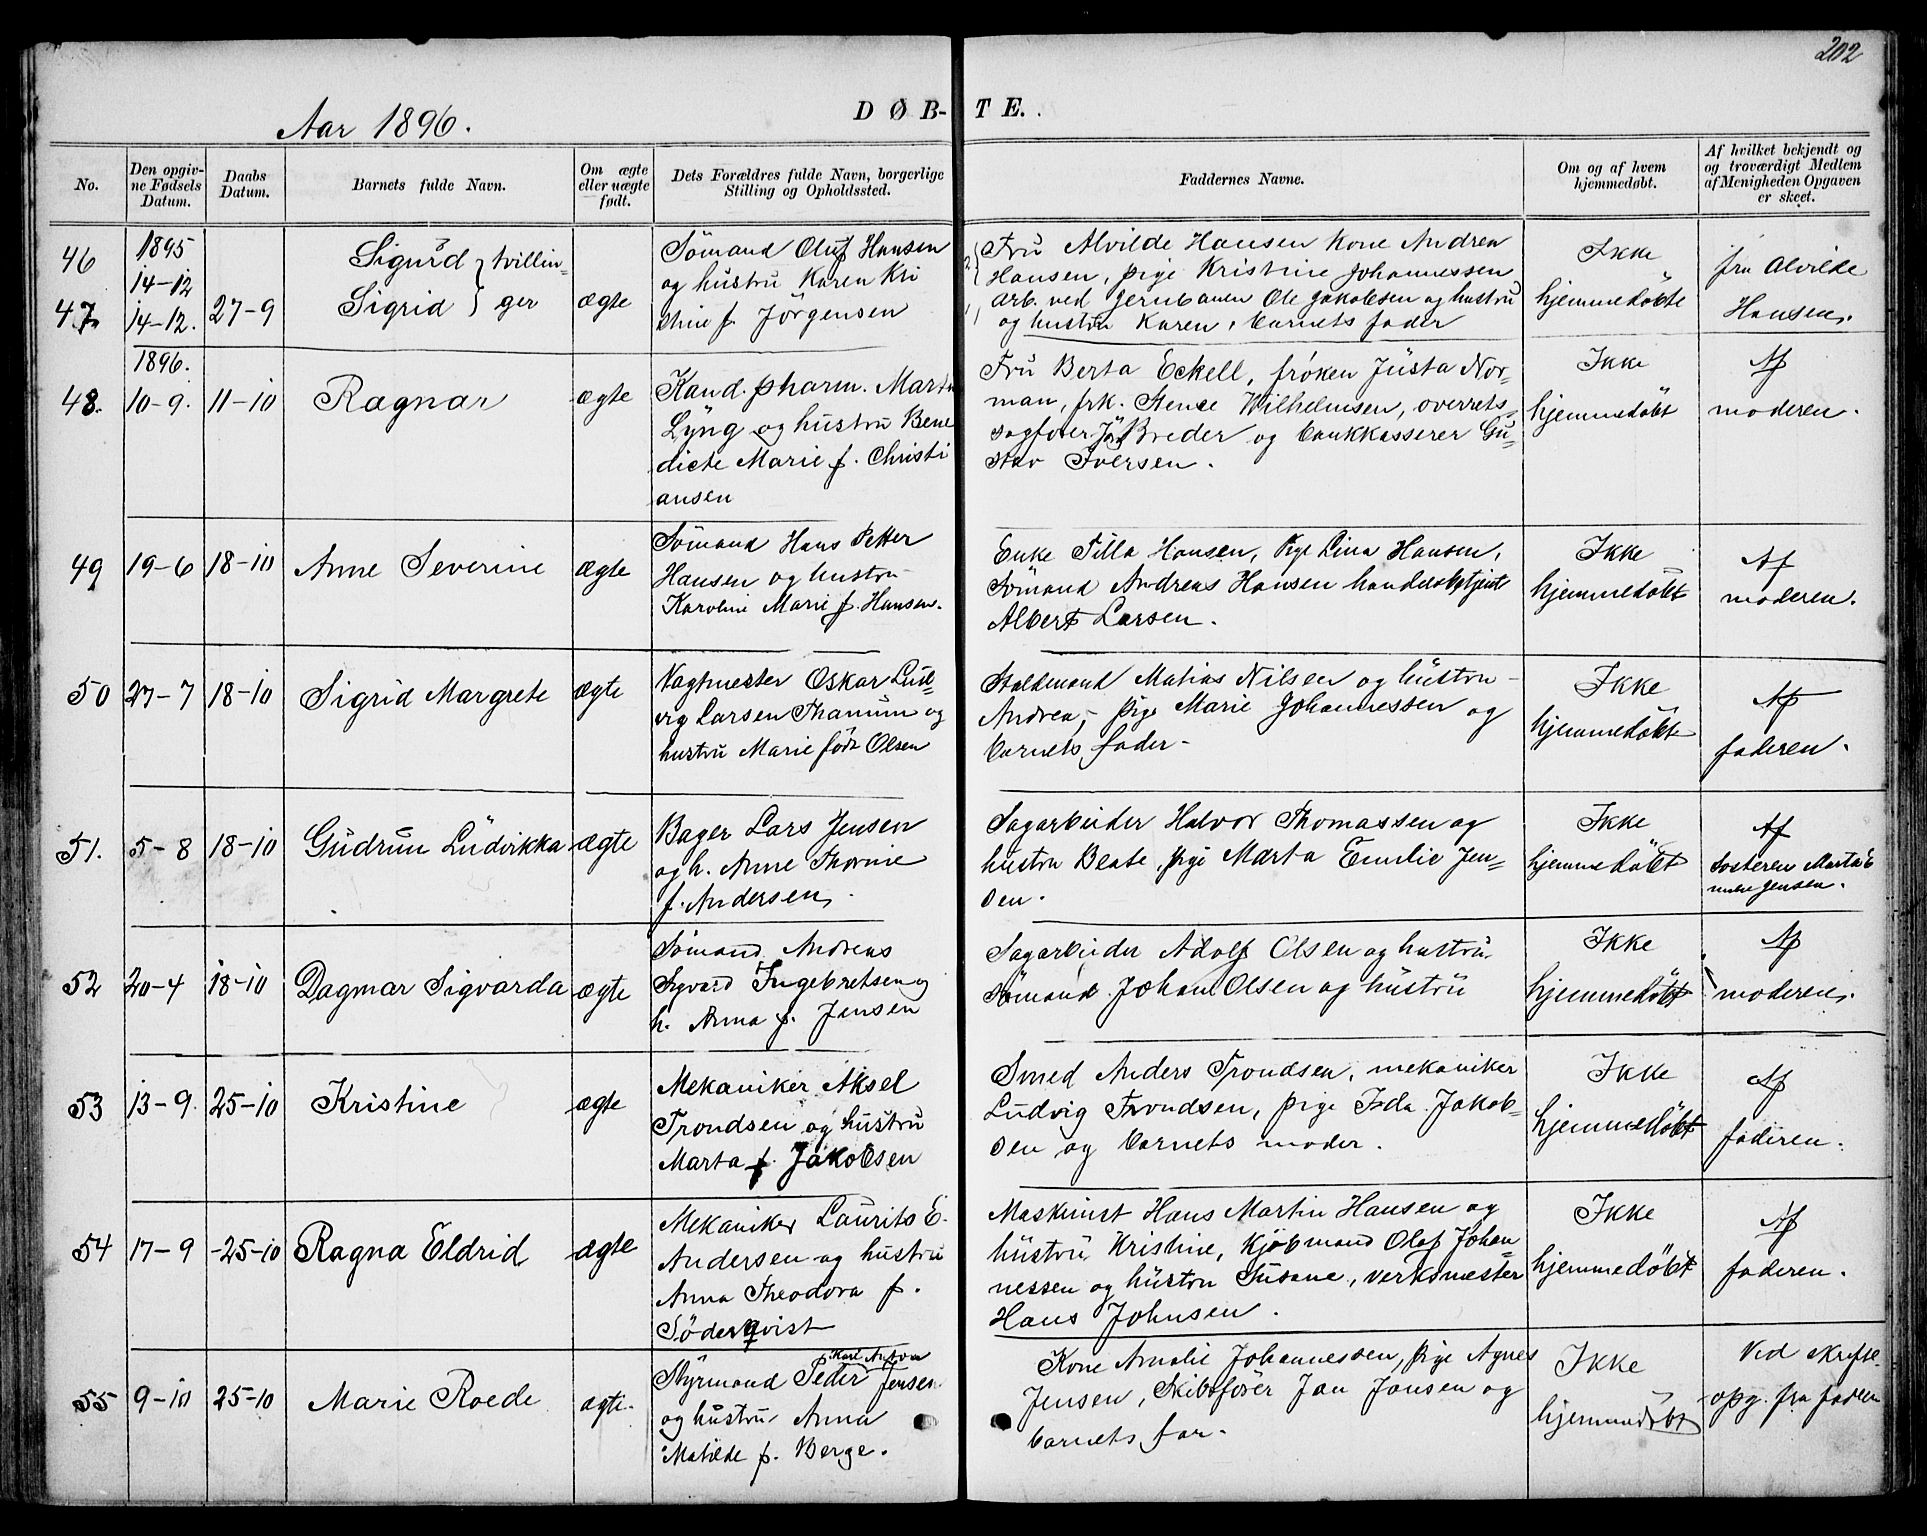 202
Aar 1896.
DØB-TE.
No.
Den opgiv-
ne Fødsels
Datum.
Daabs
Datum.
Barnets fulde Navn.
Om ægte
eller uægte
født.
Dets Forældres fulde Navn, borgerlige
Stilling og Opholdssted.
Faddernes Navne.
Om og af hvem
hjemmedøbt.
Af hvilket bekjendt og
og troværdigt Medlem
af Menigheden Opgaven
er skeet.
46
47.
1895
14-12
14-12.
27-9
Sigurd } tvillin-
Sigrid } ger
ægte
Sömand Oluf Hansen
og hustru Karen Kri
stine f. Jörgensen
Fru Alvilde Hansen Kone Andrea
Hansen, pige Kristine Johannessen
Arb. ved Jernbanen Ole Jakobsen og hustru
og hustru Karen, barnets fader
Ikke
hjemmedöbte
fru Alvilde
Hansen.
48.
1896.
10-9.
11-10
Ragnar
ægte
Kand. pharm. Martin
Lyng og hustru Bene
dicte Marie f. Christi
ansen
Fru Berta Eckell, fröken Justa Nor-
man, frk. Stence Wilhelmsen, overrets-
sagfører Breder og bankkasserer Gu-
stav Iversen.
Ikke
hjemmedöbt
Af
moderen.
49
19-6
18-10
Anne Severine
ægte
Sömand Hans Petter
Hansen og hustru
Karoline Marie f. Hansen.
Enke Tilla Hansen, Pige Lina Hansen,
Sömand Andreas Hansen handelsbetjent
Albert Larsen.
Ikke
hjemmedöbt
Af
moderen.
50
27-7
18-10
Sigrid Margrete
ægte
Vagtmester Oskar Lud-
vig Larsen Thanum og
hustru Marie født Olsen
Staldmand Matias Nilsen og hustru
Andrea, pige Marie Johannessen og
barnets fader-
Ikke
hjemmedöbt
Af
faderen.
51.
5-8
18-10
Gudrun Ludvikka
ægte
Bager Lars Jensen
og h. Anne Thorine
f. Andersen.
Sagarbeider Halvor Thomassen og
hustru Beate, pige Marta Emilie Jen-
sen.
Ikke
hjemmedöbt
Af
søsteren Marta E
milie Jensen.
52
20-4
18-10
Dagmar Sigvarda
ægte
Sömand Andreas
Sigvard Ingebretsen og
h. Anna f. Jensen
Sagarbeider Adolf Olsen og hustru
Sömand Johan Olsen og hustru
Ikke
hjemmedöbt
Af
moderen.
53
13-9.
25-10
Kristine
ægte
Mekaniker Aksel
Trondsen og hustru
Marta f. Jakobsen
Smed Anders Trondsen, mekaniker
Ludvig Trondsen, pige Ida Jakob-
sen og barnets moder.
Ikke
hjemmedöbt
Af
faderen.
54
17-9
-25-10
Ragna Eldrid
ægte
Mekaniker Laurits E.
Andersen og hustru
Anna Theodora f.
Söderqvist
Maskinist Hans Martin Hansen og
hustru Kristine, Kjöbmand Olaf Johan-
nessen og hustru Susane, verksmester
Hans Johnsen.
Ikke
hjemmedöbt
Af
faderen.
55
9-10
25-10
Marie Roede
ægte.
Karl Anton
Styrmand Peder Jensen
og hustru Anna
Matilde f. Berge.
Kone Amalie Johannessen, pige Agnes
Jensen, Skibsförer Jan Jansen og
barnets far.
Ikke
hjemmedöbt
Ved skriftl.
opg. fra faderen